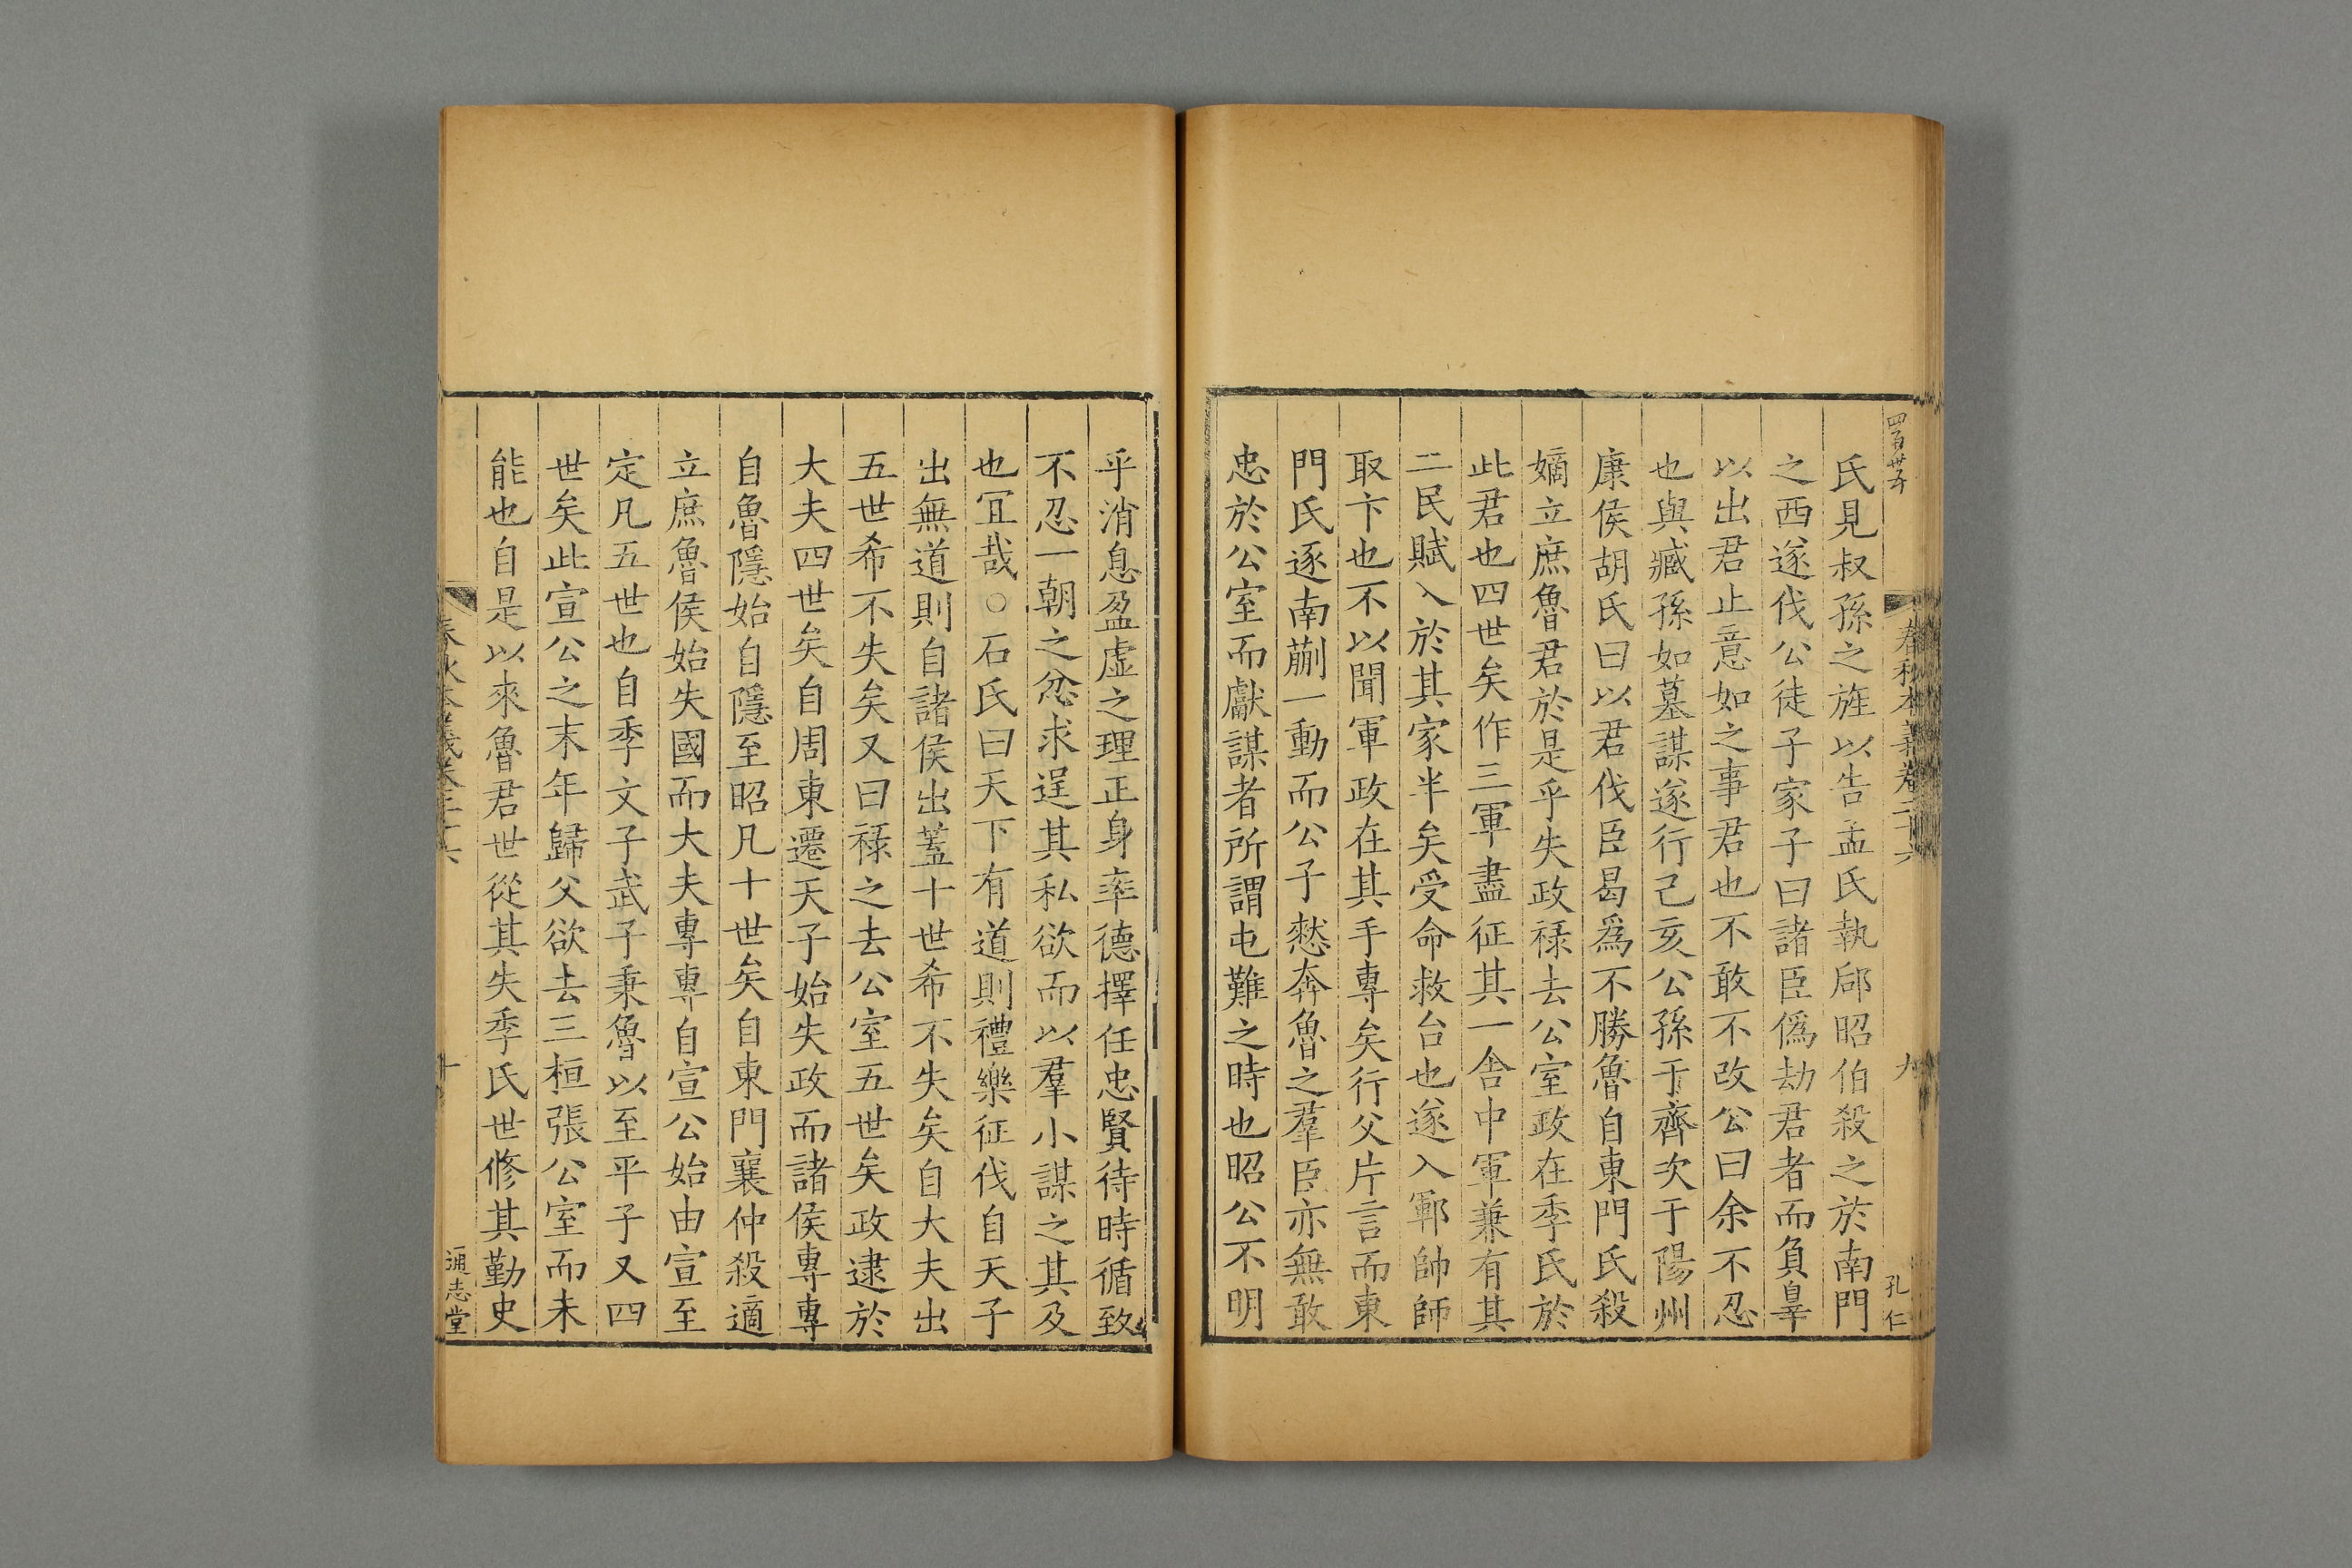 四百廿五
春秋本義卷二十六
九
孔仁
氏見叔孫之旌以告孟氏執郈昭伯殺之於南門
之西遂伐公徒子家子曰諸臣僞劫君者而負辠
以出君止意如之事君也不敢不改公曰余不忍
也與臧孫如墓謀遂行己亥公孫于齊次于陽州
康侯胡氏曰以君伐臣曷爲不勝魯自東門氏殺
嫡立庶魯君於是乎失政祿去公室政在季氏於
此君也四世矣作三軍盡征其一舍中軍兼有其
二民賦入於其家半矣受命救台也遂入鄆帥師
取卞也不以聞軍政在其手專矣行父片言而東
門氏逐南蒯一動而公子憖奔魯之羣臣亦無敢
忠於公室而獻謀者所謂屯難之時也昭公不明
乎消息盈虛之理正身率德擇任忠賢待時循致
不忍一朝之忿求逞其私欲而以羣小謀之其及
也冝哉○石氏曰天下有道則禮樂征伐自天子
出無道則自諸侯出蓋十世希不失矣自大夫出
五世希不失矣又曰祿之去公室五世矣政逮於
大夫四世矣自周東遷天子始失政而諸侯專專
自魯隱始自隱至昭凡十世矣自東門襄仲殺適
立庶魯侯始失國而大夫專專自宣公始由宣至
定凡五世也自季文子武子秉魯以至平子又四
世矣此宣公之末年歸父欲去三桓張公室而未
能也自是以來魯君世從其失季氏世修其勤史
春秋本義卷二十六
十
通志堂